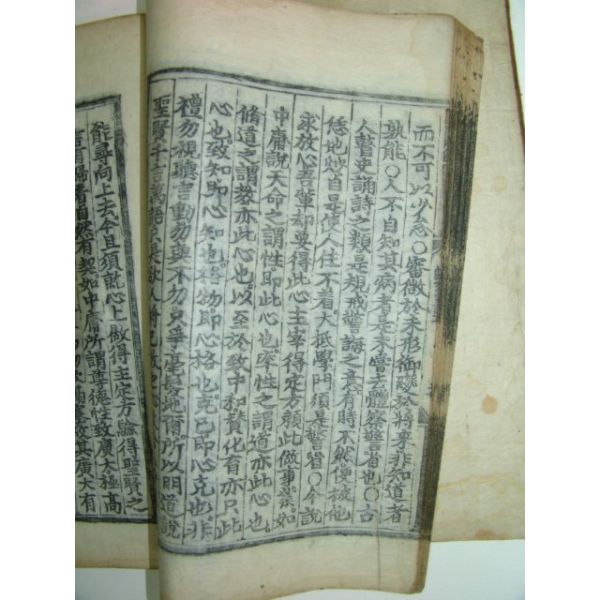 而不可以少怠○審微於未形御變於將來非知道者
孰能○人不自知其病者是未嘗去體察警省也○古
人瞽史誦詩之類是規戒警誨之意有時不然便被他
恁地炒自是使人住不着大抵學問須是警省○今說
求放心吾輩却要得此心主宰得定方賴此做事業如
中庸說天命之謂性即此心也率性之謂道亦此心也
脩道之謂敎亦此心也以至於致中和贊化育亦只此
心也致知即心知也格物即心格也克己即心克也非
禮勿視聽言動勿與不勿只爭毫髮地爾所以明道說
聖賢千言萬語只是欲人將已放之心
能尋向上去今且須就心上做得主定方驗得聖賢之
言有歸着自然有契如中庸所謂尊德性致廣大極高